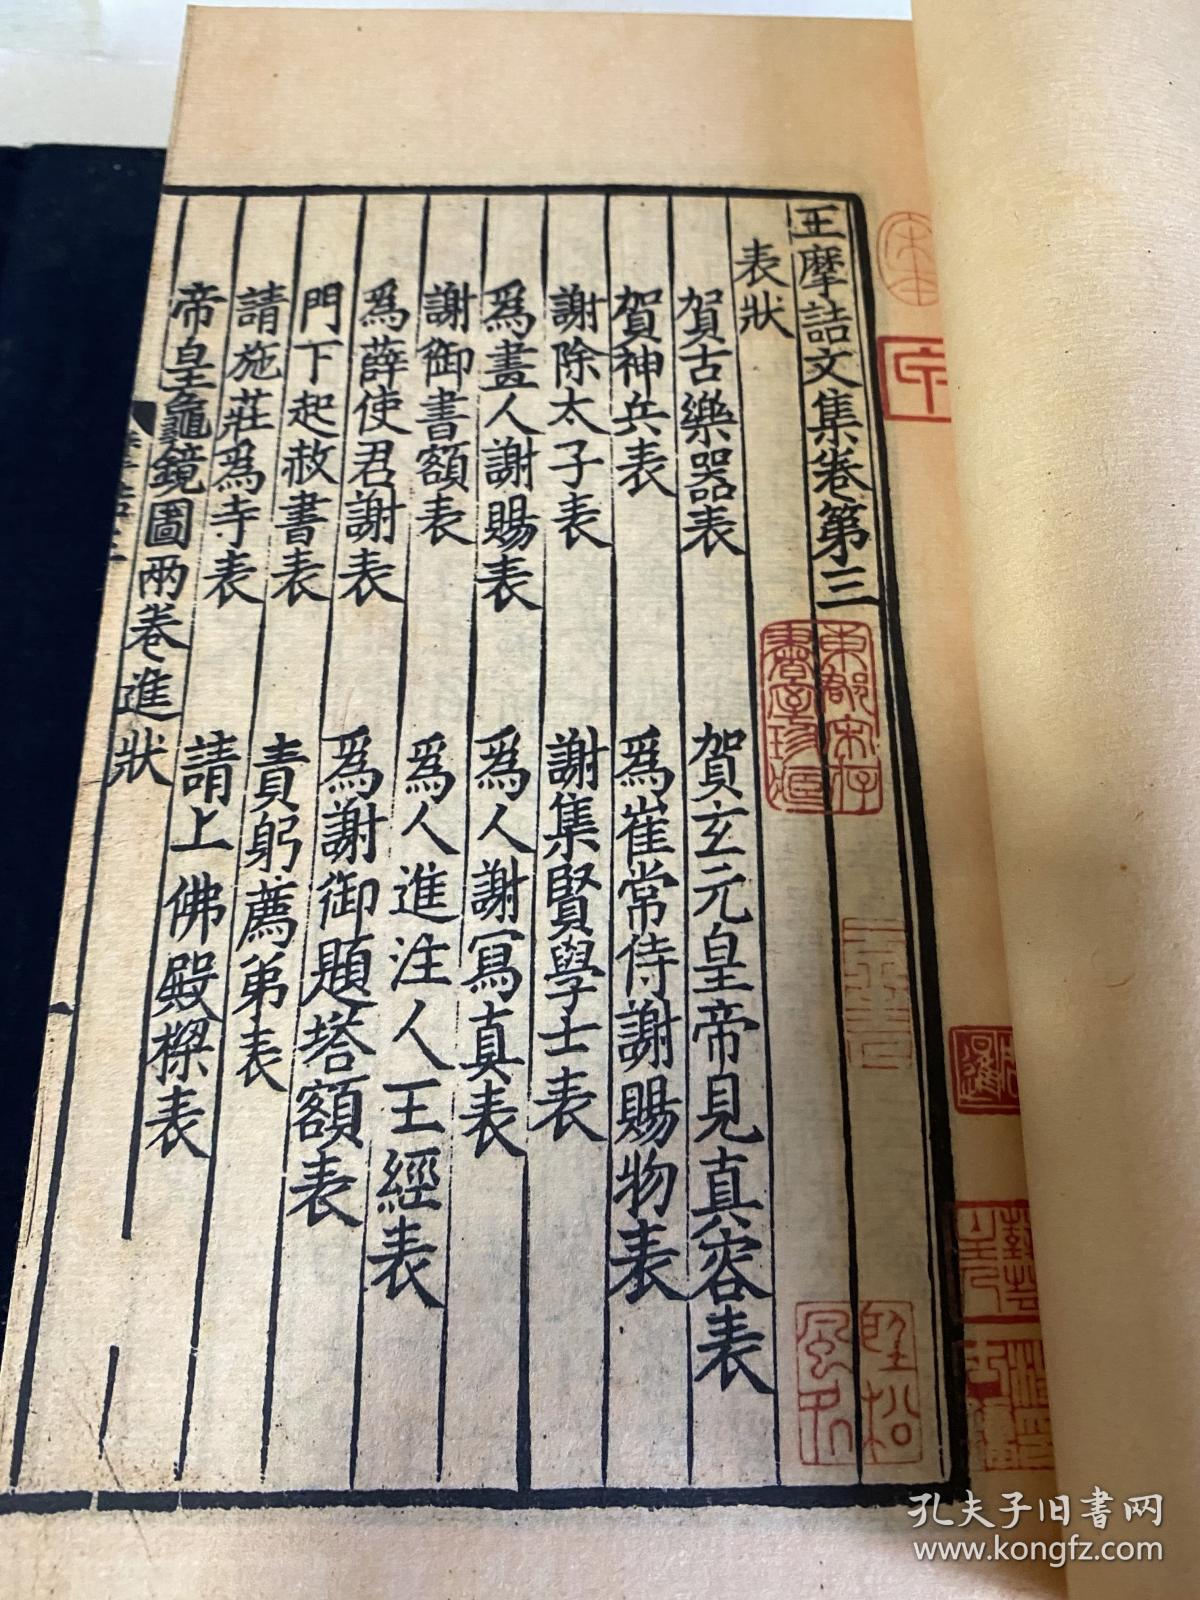 王摩詰文集卷第三
表狀
賀古樂器表　賀玄元皇帝見真容表
賀神兵表　為崔常侍謝賜物表
謝除太子表　謝集賢學士表
為畫人謝賜表　為人謝寫真表
謝御書額表　為人進注人王經表
為薛使君謝表　為謝御題塔額表
門下起赦書表　責躬薦弟表
請施莊為寺表　請上佛殿樑表
帝皇龜鏡圖兩卷進狀
東郡宋存書室珍藏
孔夫子旧书网
www.kongfz.com